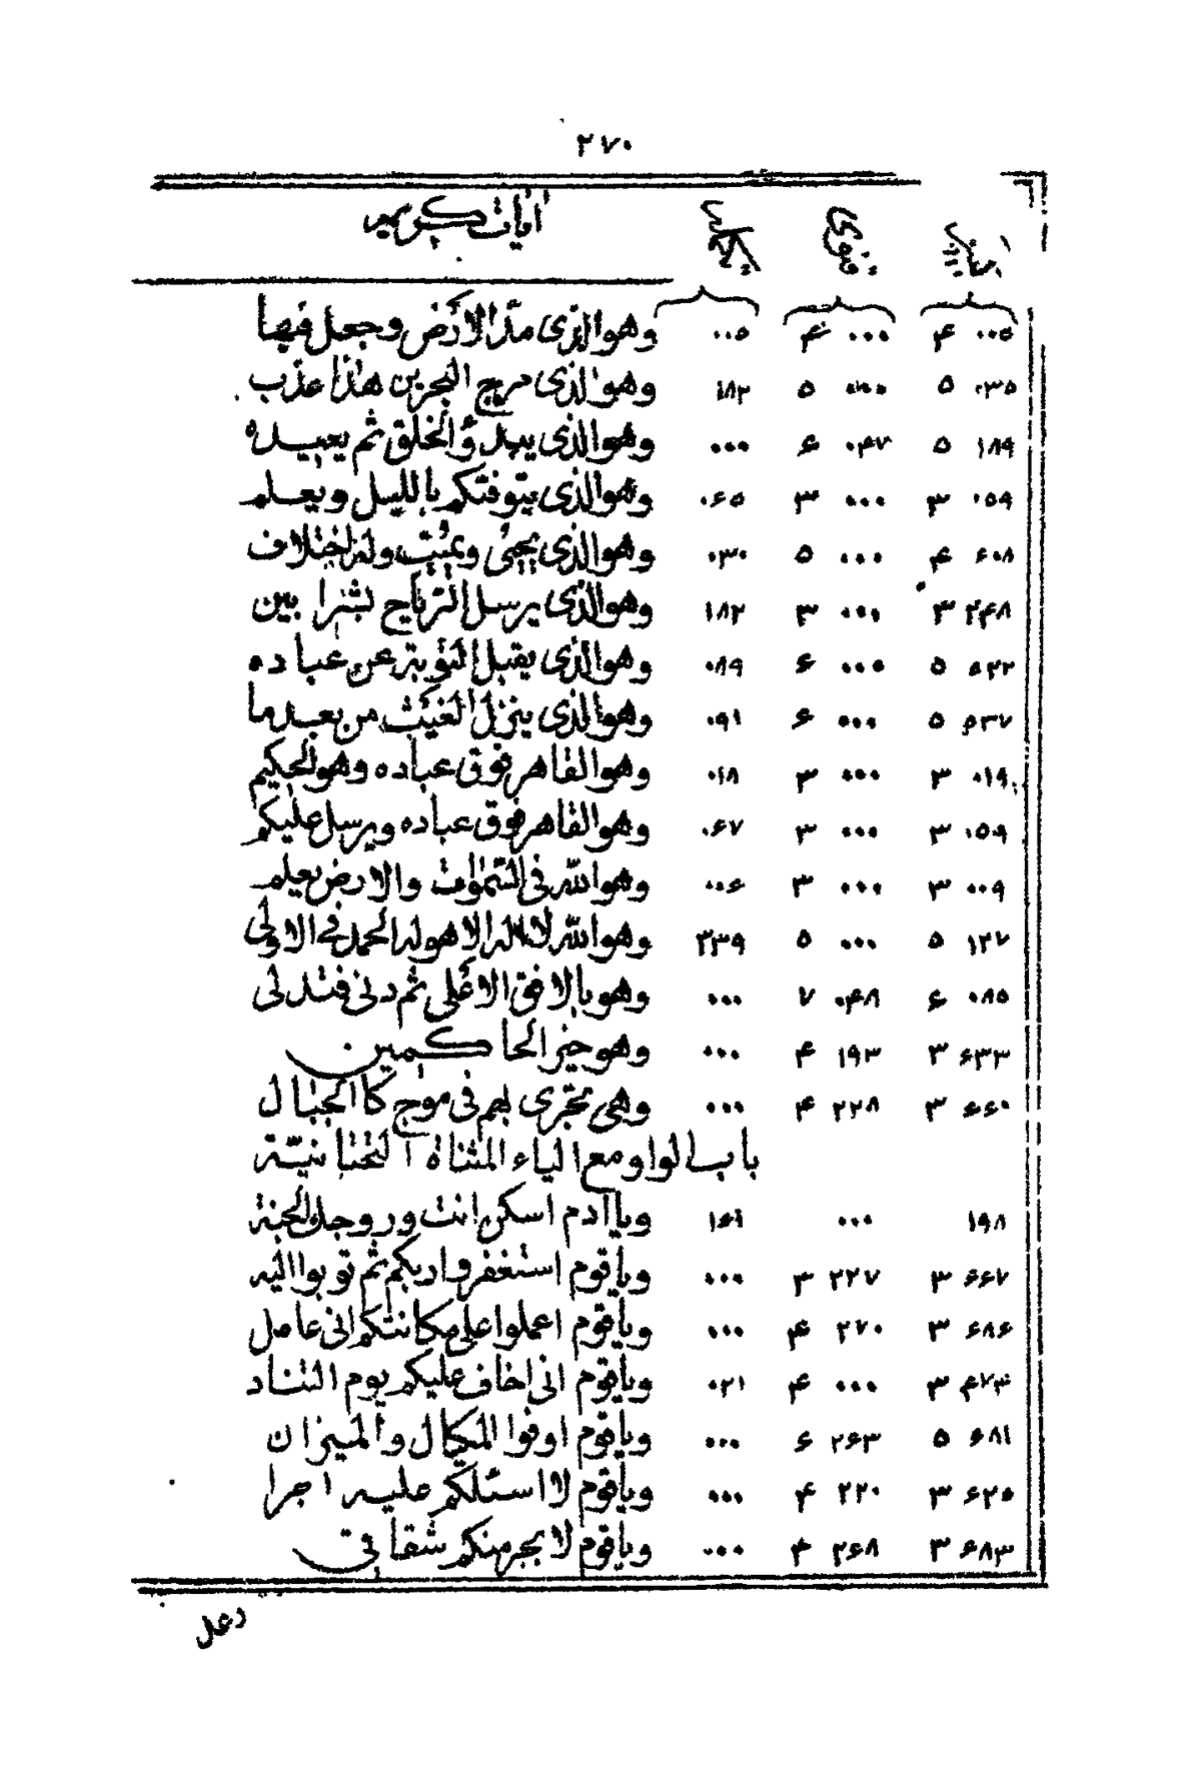 ٢٧٠
آيات كريمه
٠٠٥ ۴ ٠٠٠ ۴ ٠٠٥ وهو الذى مدّ الأرض وجعل فيها
٠٣٥ ٥ ٠٠٠ ٥ ١٨٢ وهو الذى مرج البحرين هذا عذب
١٨٩ ٥ ٠۴٧ ۶ ٠٠٠ وهو الذى يبدؤ الخلق ثم يعيده
٠٥٩ ٣ ٠٠٠ ٣ ٠۶٥ وهو الذى يتوفٰيكم بالليل ويعلم
۶٠٨ ۴ ٠٠٠ ٥ ٠٣٠ وهو الذى يحيى ويميت وله اختلاف
٢۴٨ ٣ ٠٠٠ ٣ ١٨٢ وهو الذى يرسل الرياح بشرا بين
٥٢٢ ٥ ٠٠٠ ۶ ٠٨٩ وهو الذى يقبل التوبة عن عباده
٥٣٧ ٥ ٠٠٠ ۶ ٠٩١ وهو الذى ينزل الغيث من بعد ما
٠١٩ ٣ ٠٠٠ ٣ ٠١٨ وهو القاهر فوق عباده وهو الحكيم
٠٥٩ ٣ ٠٠٠ ٣ ٠۶٧ وهو القاهر فوق عباده ويرسل عليكم
٠٠٩ ٣ ٠٠٠ ٣ ٠٠۶ وهو الله فى السمٰوات والارض يعلم
١٢٧ ٥ ٠٠٠ ٥ ٣٣٩ وهو الله لا اله الا هو له الحمد فى الاولى
٠٨٥ ۶ ٠۴٨ ٧ ٠٠٠ وهو بالافق الاعلى ثم دنى فتدلى
۶٣٣ ٣ ١٩٣ ۴ ٠٠٠ وهو خير الحاكمين
۶۶٠ ٣ ٢٢٨ ۴ ٠٠٠ وهى تجرى بهم فى موج كالجبال
باب الواو مع الياء المثناة التحتانيّة
١٩٨ ٠٠٠ ١۶١ ويا آدم اسكن انت وزوجك الجنة
۶۶٧ ٣ ٢٢٧ ٣ ٠٠٠ وياقوم استغفروا ربكم ثم توبوا اليه
۶٨۶ ٣ ٢٧٠ ۴ ٠٠٠ وياقوم اعملوا على مكانتكم انى عامل
۴٧٣ ٣ ٠٠٠ ۴ ٠٢١ وياقوم انى اخاف عليكم يوم التناد
۶٨١ ٥ ٢۶٣ ۶ ٠٠٠ وياقوم اوفوا المكيال والميزان
۶٢٥ ٣ ٢٢٠ ۴ ٠٠٠ وياقوم لا اسئلكم عليه اجرا
۶٨٣ ٣ ٢۶٨ ۴ ٠٠٠ وياقوم لا يجرمنكم شقاقى